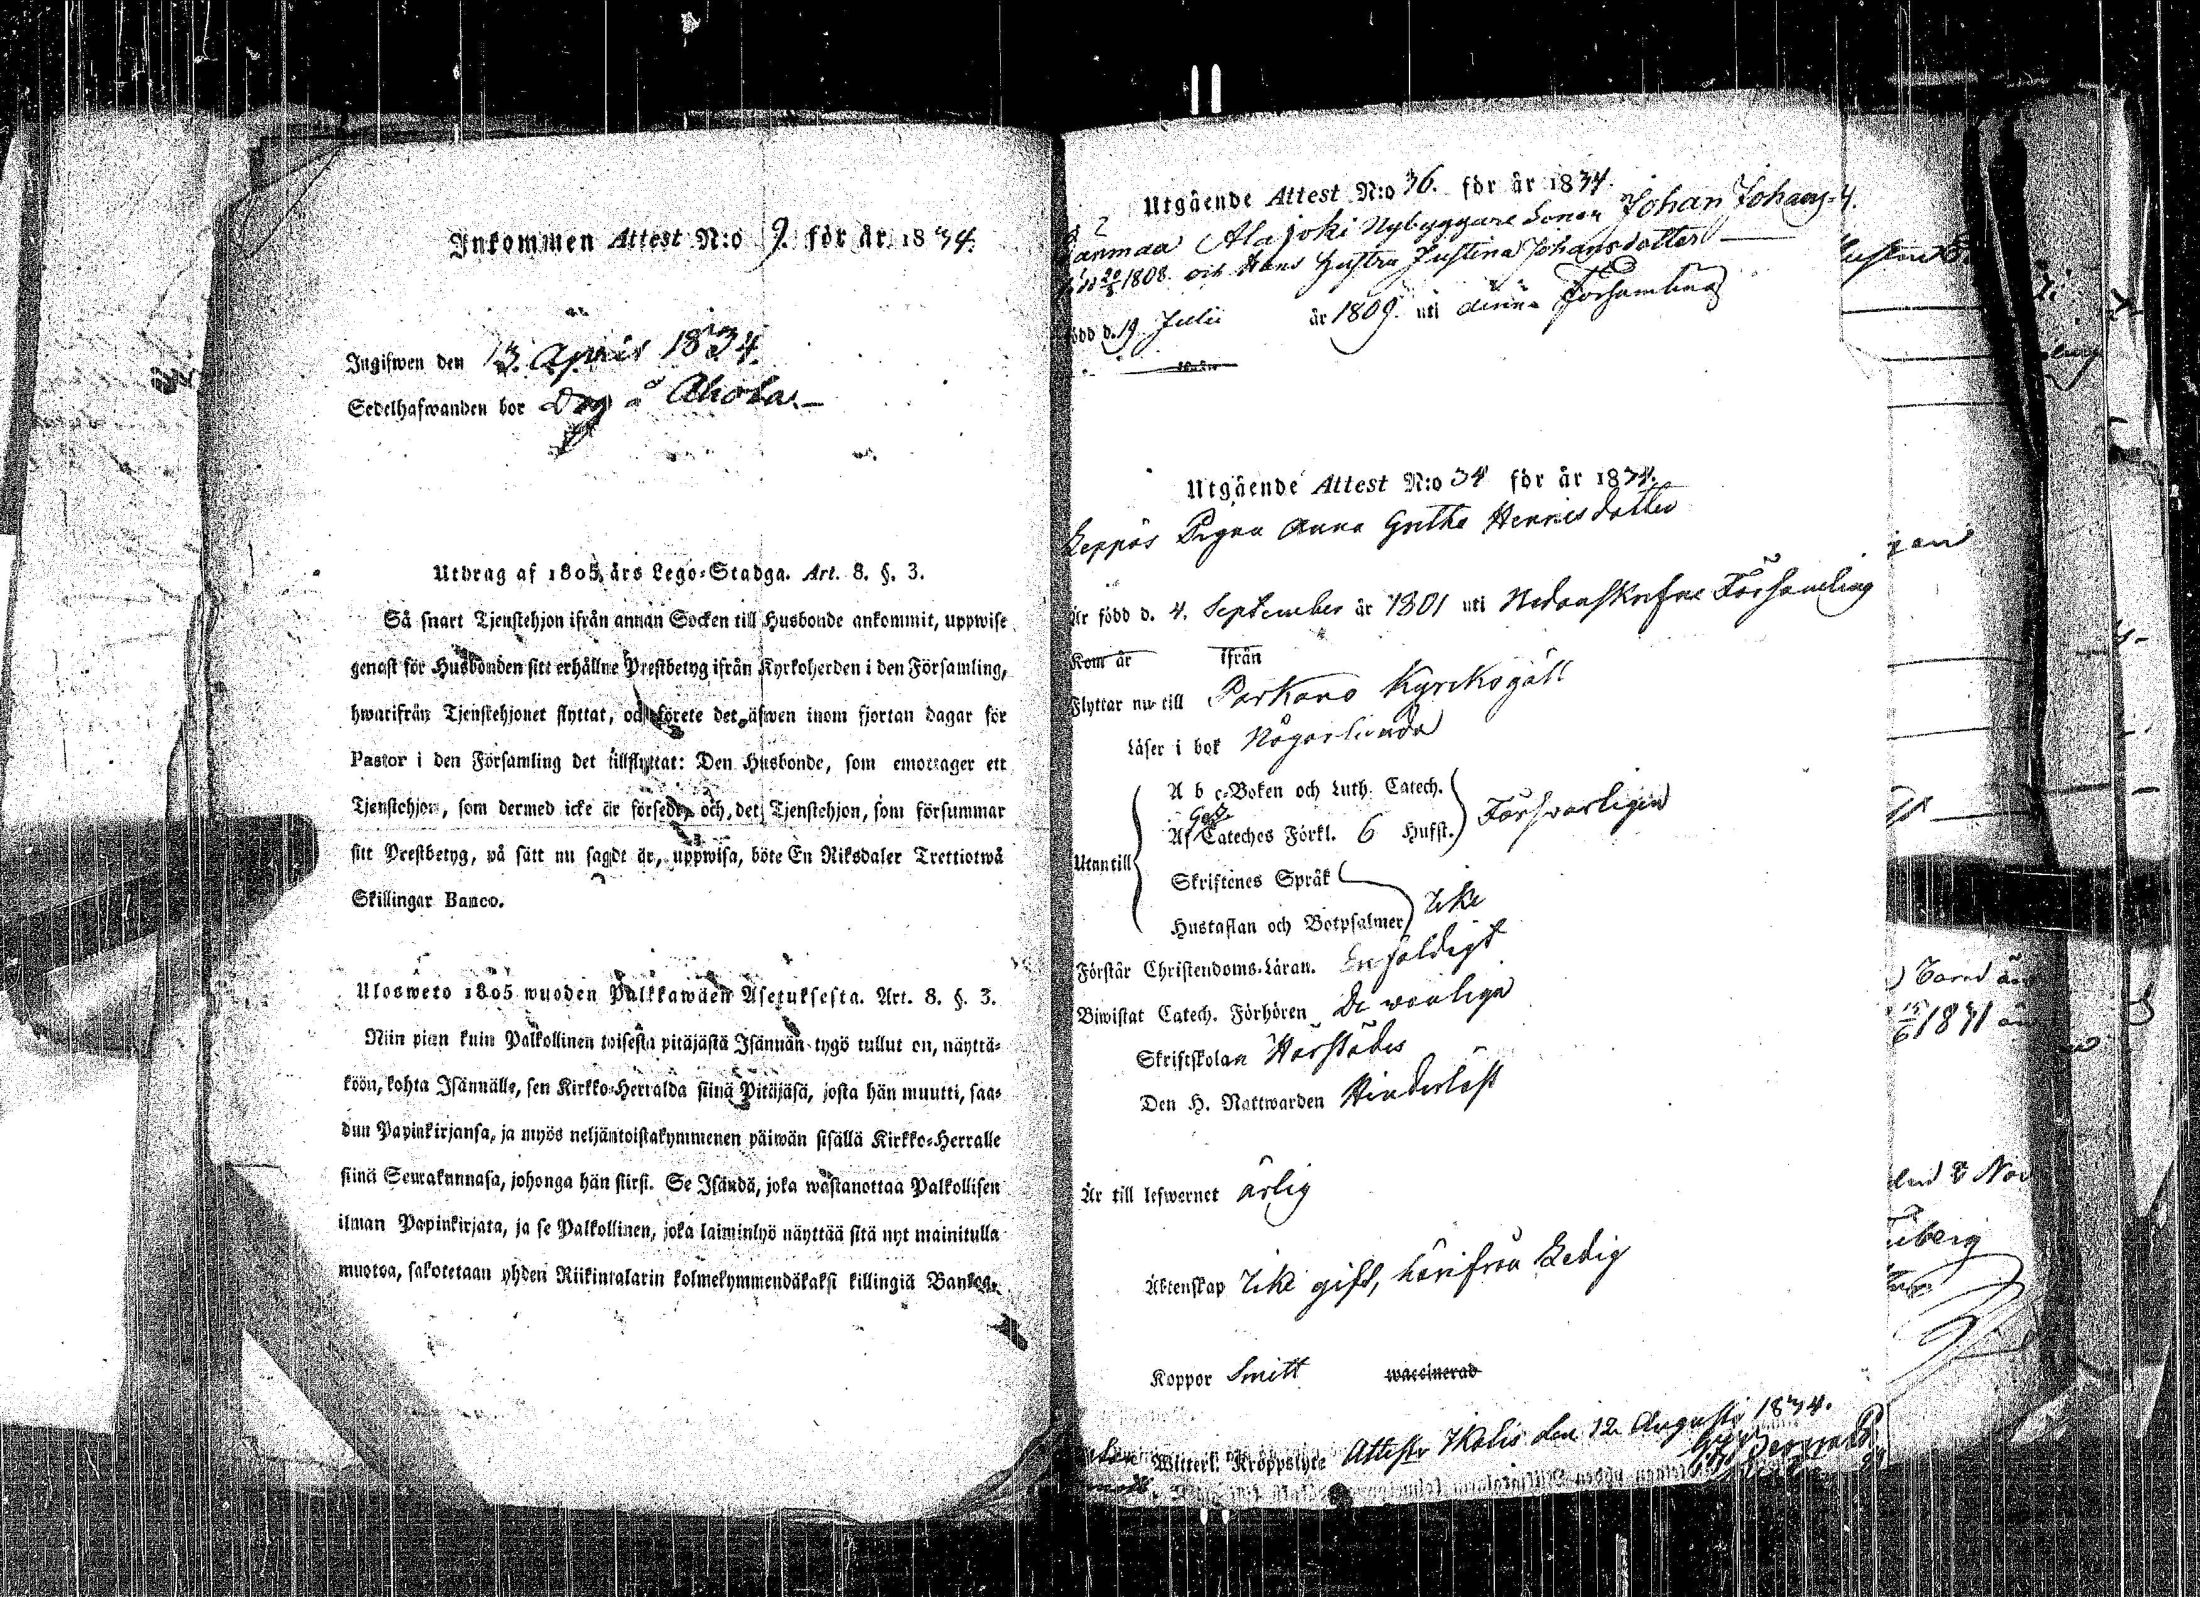 Inkommen Attest N:o 9. för år 1834.
Ingifwen den 13. April 1834.
Sedelhafwanden bor Ahola.
Utdrag af 1805 års Lego-Stadga. Art. 8. §. 3.
Så snart Tjenstehjon ifrån annan Socken till Husbonde ankommit, uppwise
genast för Husbonden sitt erhållne Prestbetyg ifrån Kyrkoherden i den Församling,
hwarifrån Tjenstehjonet flyttat, och förete det äfwen inom fjortan dagar för
Pastor i den Församling det tillflyttat: Den Husbonde, som emottager ett
Tjenstehjon, som dermed icke är försedt, och det Tjenstehjon, som försummar
sitt Prestbetyg, på sätt nu sagdt är, uppwisa, böte En Riksdaler Trettiotwå
Skillingar Banco.
Ulosweto 1805 wuoden Palkkawäen Asetuksesta. Art. 8. §. 3.
Niin pian kuin Palkollinen toisesta pitäjästä Isännän tygö tullut on, näyttä-
köön, kohta Isännälle, sen Kirkko-Herralda siinä Pitäjäsä, josta hän muutti, saa-
dun Papinkirjansa, ja myös neljäntoistakymmenen päiwän sisällä Kirkko-Herralle
siinä Seurakunnasa, johonga hän siirsi. Se Isändä, joka wastanottaa Palkollisen
ilman Papinkirjata, ja se Palkollinen, joka laiminlyö näyttää sitä nyt mainitulla
muotoa, sakotetaan yhden Riikintalarin kolmekymmendäkaksi killingiä Bankoa.
Utgående Attest N:o 36. för år 1834.
Alajoki Nybyggare Sonen Johan Johans-
1808 och Hans Hustru Justina Johansdotter
född d. 19 Julii år 1809. uti denna Församling
Utgående Attest N:o 34 för år 1834.
Leppäs Pigan Anna Gretha Henricsdotter
Är född d. 4. September år 1801 uti Nedanskrefne Församling
Kom år ifrån
Flyttar nu till Parkano Kyrckogäll
Läser i bok Någorlunda
A b c-Boken och Luth. Catech.
Af Cateches Förkl. 6 Hufst. Försvarligen
Utantill
Skriftenes Språk
Hustaflan och Botpsalmer Icke
Förstår Christendoms-Läran. Enfaldigt
Biwistat Catech. Förhören De vanliga
Skriftskolan Härstädes
Den H. Nattwarden Hinderlöst
Är till lefwernet ärlig
Äktenskap Icke gift, härifrån Ledig
Koppor Smitt waccinerad
Witterl. Kroppslyte Attestr Ikalis den 12 Augusti 1834.